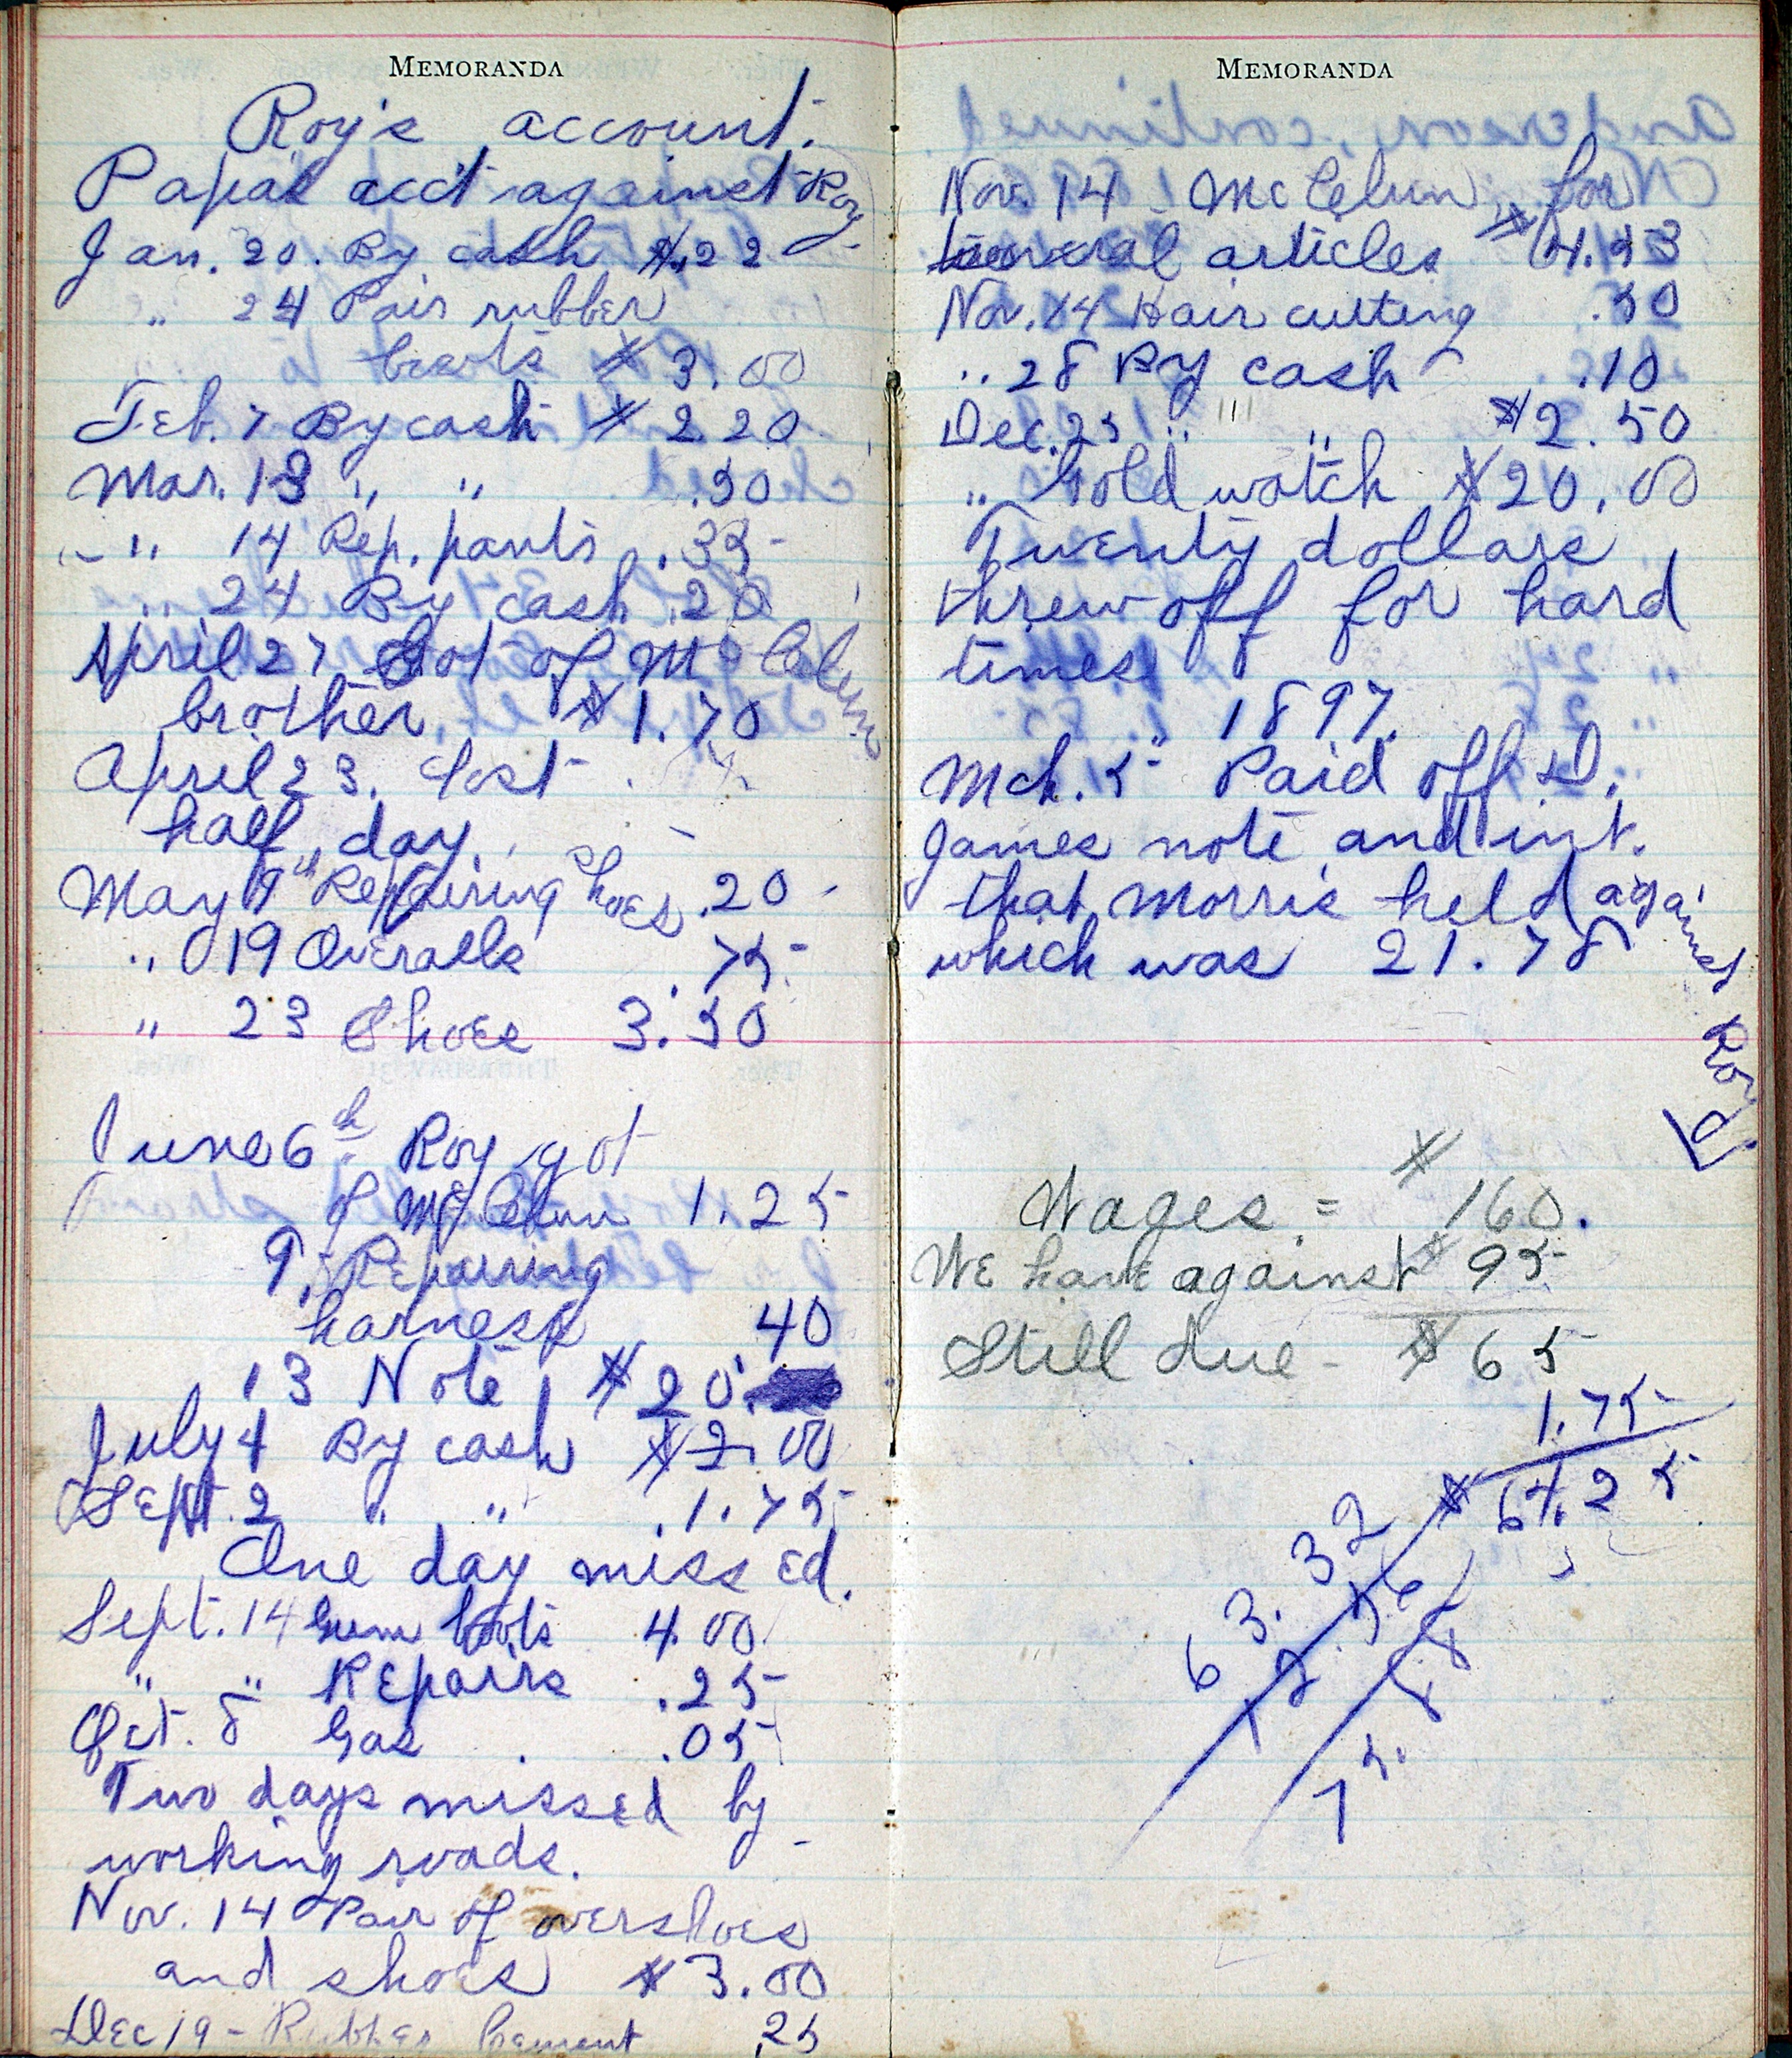 MEMORANDA
Roy's account.
Papa's acct against Roy
Jan. 20. By cash $.22
" 24 Pair rubber
boots $3.00
Feb. 7 By cash $2.20
Mar. 13 " " .50
" 14 Rep. pants .35
" 24 By cash .20
April 27 Got of McClun
brother, $1.70
April 23. Lost
half day.
May 9th Repairing shoes .20
" 19 Overalls .75
" 23 Shoes 3.50
June 6th Roy got
of McClun 1.25
9, Repairing
harness 40
13 Note $20.
July 4 By cash $2.00
Sept. 2 " " .1.75
One day missed.
Sept. 14 Gum boots 4.00
" " Repairs .25
Oct. 8 Gas .05
Two days missed by
working roads.
Nov. 14 Pair of overshoes
and shoes $3.00
Dec 19 - Rubber Cement .25
MEMORANDA
Nov. 14 McClun, for
several articles $4.53
Nov. 14 Hair cutting .50
.. 28 By cash .10
Dec. 25 " " $2.50
" Gold watch $20.00
Twenty dollars
threw off for hard
times.
1897.
Mch. 5 Paid off D.
James note and int.
that Morris held against Roy
which was 21.78
Pd.
Wages = $160.
We have against $95
Still due - $65
1.75
$64.25
63.32
75.